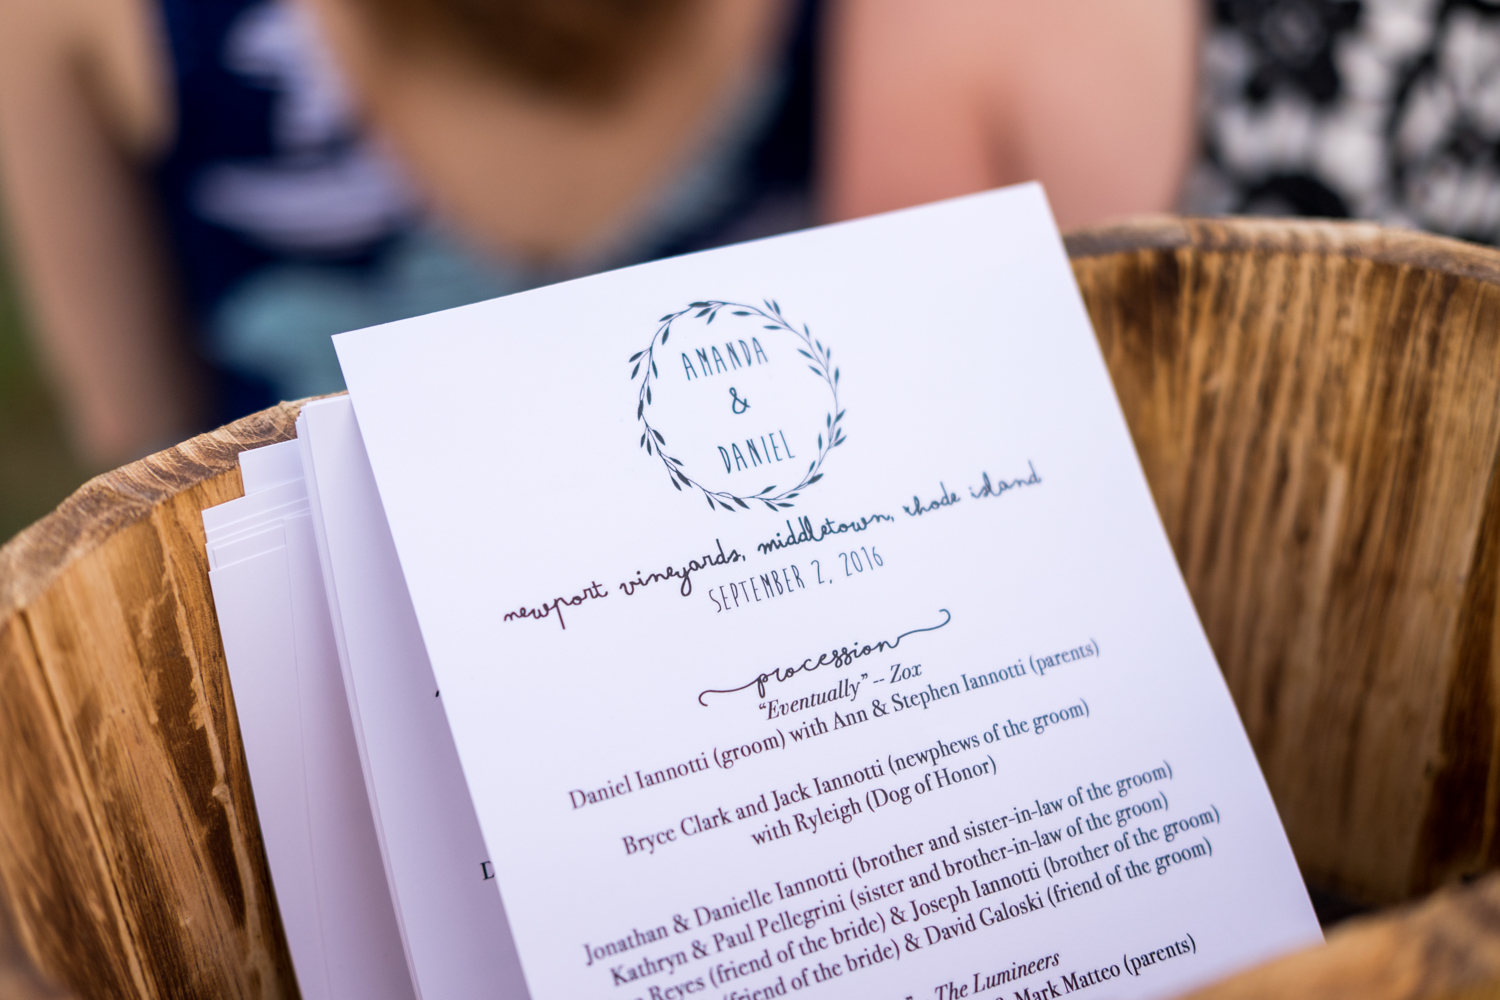 AMANDA
&
DANIEL
newport vineyards, middletown, rhode island
SEPTEMBER 2, 2016
procession
“Eventually” -- Zox
Daniel Iannotti (groom) with Ann & Stephen Iannotti (parents)
Bryce Clark and Jack Iannotti (newphews of the groom)
with Ryleigh (Dog of Honor)
Jonathan & Danielle Iannotti (brother and sister-in-law of the groom)
Kathryn & Paul Pellegrini (sister and brother-in-law of the groon)
Reyes (friend of the bride) & Joseph Iannotti (brother of the groom)
(friend of the bride) & David Galoski (friend of the groom)
The Lumineers
Mark Matteo (parents)